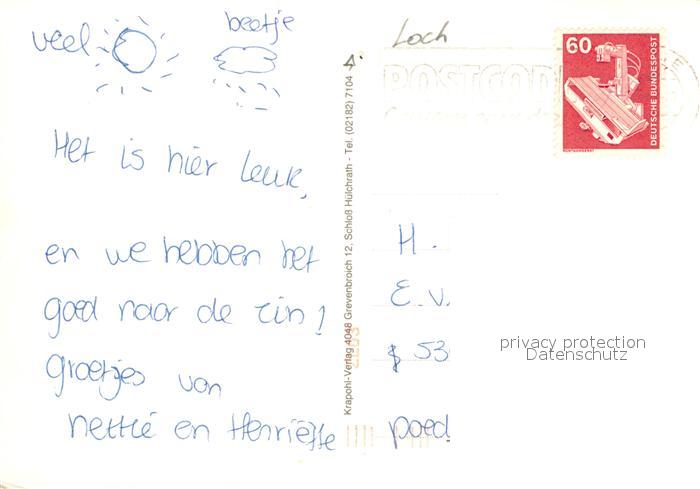 veel
beetje
Het is hier leuk,
en we hebben het
goed naar de zin!
groetjes van
Nettie en Henriëtte
Krapohl-Verlag 4048 Grevenbroich 12, Schloß Hülchrath - Tel. (02182) 7104
Loch
POSTCOD
60
DEUTSCHE BUNDESPOST
RÖNTGENGERÄT
H.
E.V.
53
poed
privacy protection
Datenschutz